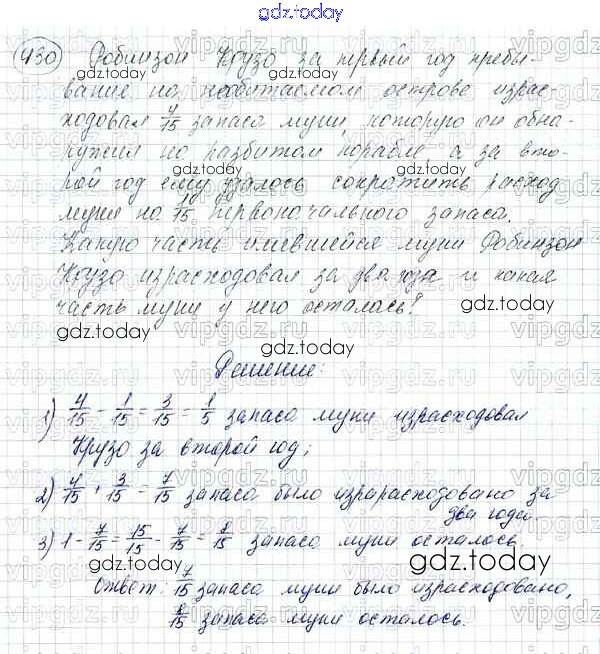 gdz.today
430 Робинзон Крузо за первый год пребы-
вание на необитаемом острове израс-
ходовал 4/15 запаса муки, которую он обна-
ружил на разбитом корабле а за вто-
рой год ему удалось сократить расход
муки на 1/15 первоначального запаса.
Какую часть имевшейся муки Робинзон
Крузо израсходовал за два года и какая
часть муки у него осталась?
Решение:
1) 4/15 - 1/15 = 3/15 = 1/5 запаса муки израсходовал
Крузо за второй год;
2) 4/15 + 3/15 = 7/15 запаса было израрасходовано за
два года.
3) 1 - 7/15 = 15/15 - 7/15 = 8/15 запаса муки осталось.
Ответ: 7/15 запаса муки было израсходовано,
8/15 запаса муки осталось.